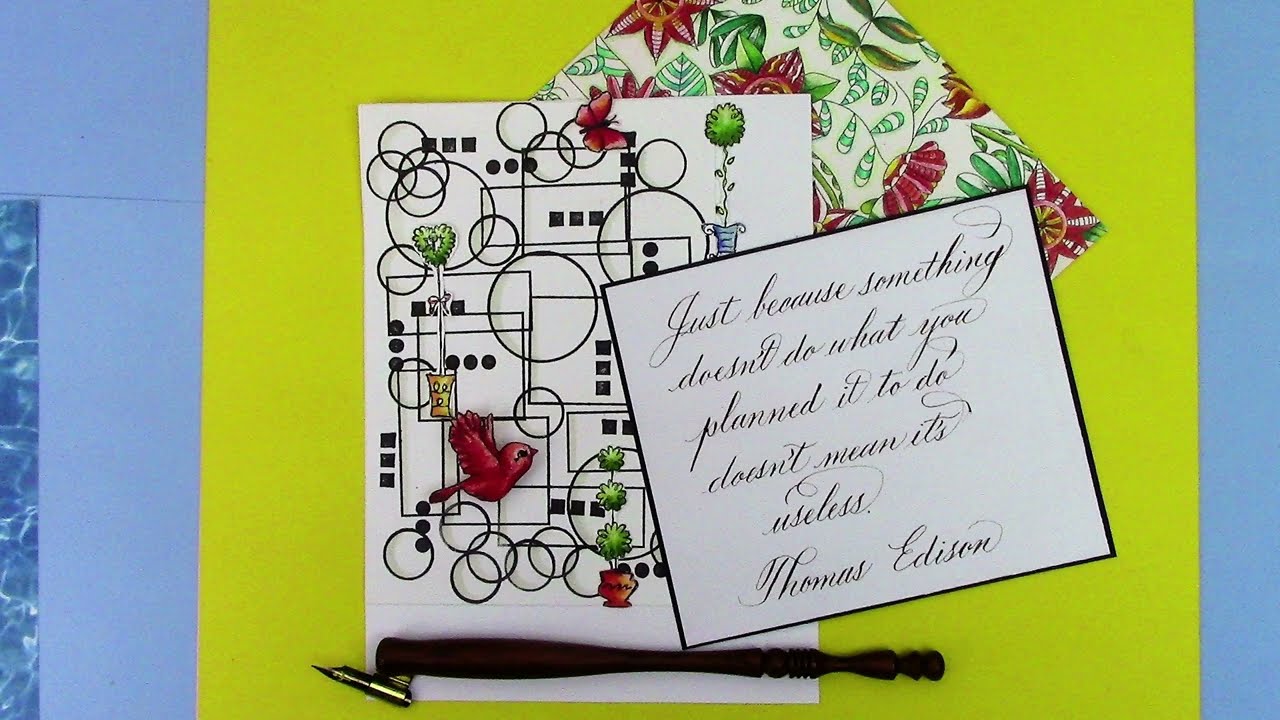 Just because something
doesn't do what you
planned it to do
doesn't mean it's
useless.
Thomas Edison